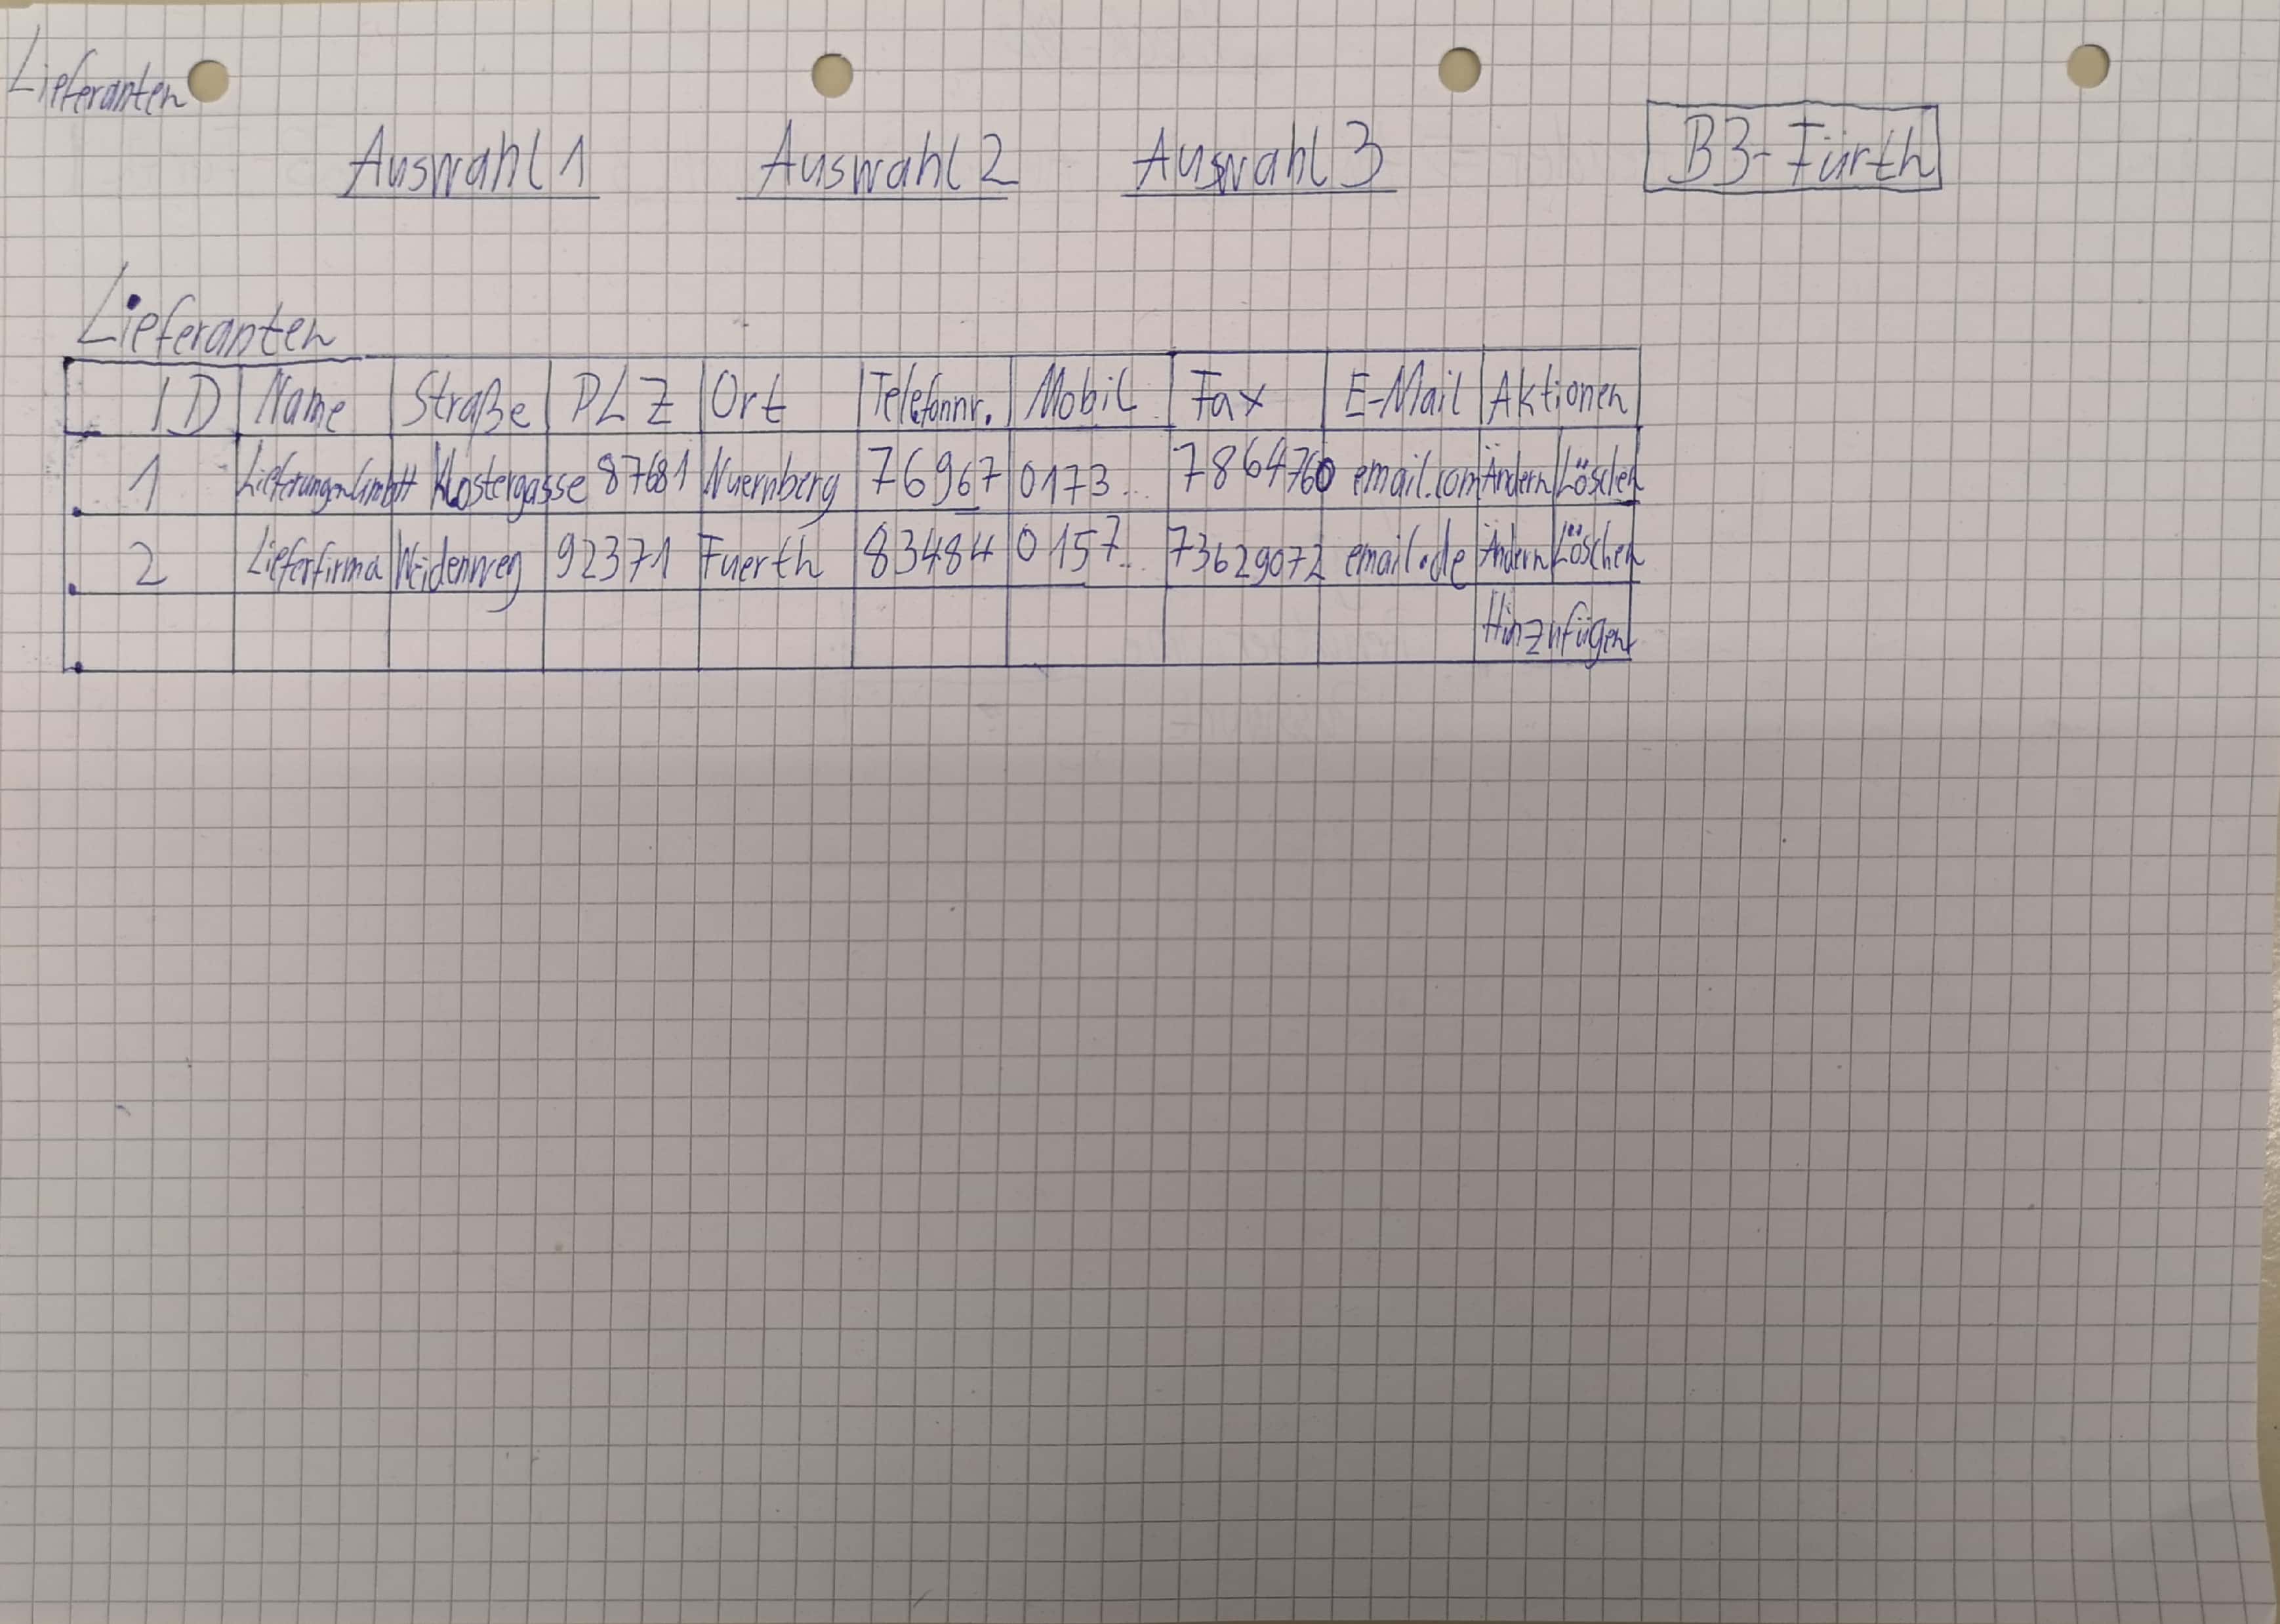 Lieferanten
Auswahl 1 Auswahl 2 Auswahl 3 B3-Fürth
Lieferanten
ID Name Straße PLZ Ort Telefonnr. Mobil Fax E-Mail Aktionen
1 LieferungenGmbH Klostergasse 87681 Nuernberg 76967 0173... 7864760 email.com Ändern Löschen
2 Lieferfirma Weidenweg 92371 Fuerth 83484 0157... 73629072 email.de Ändern Löschen
Hinzufügen